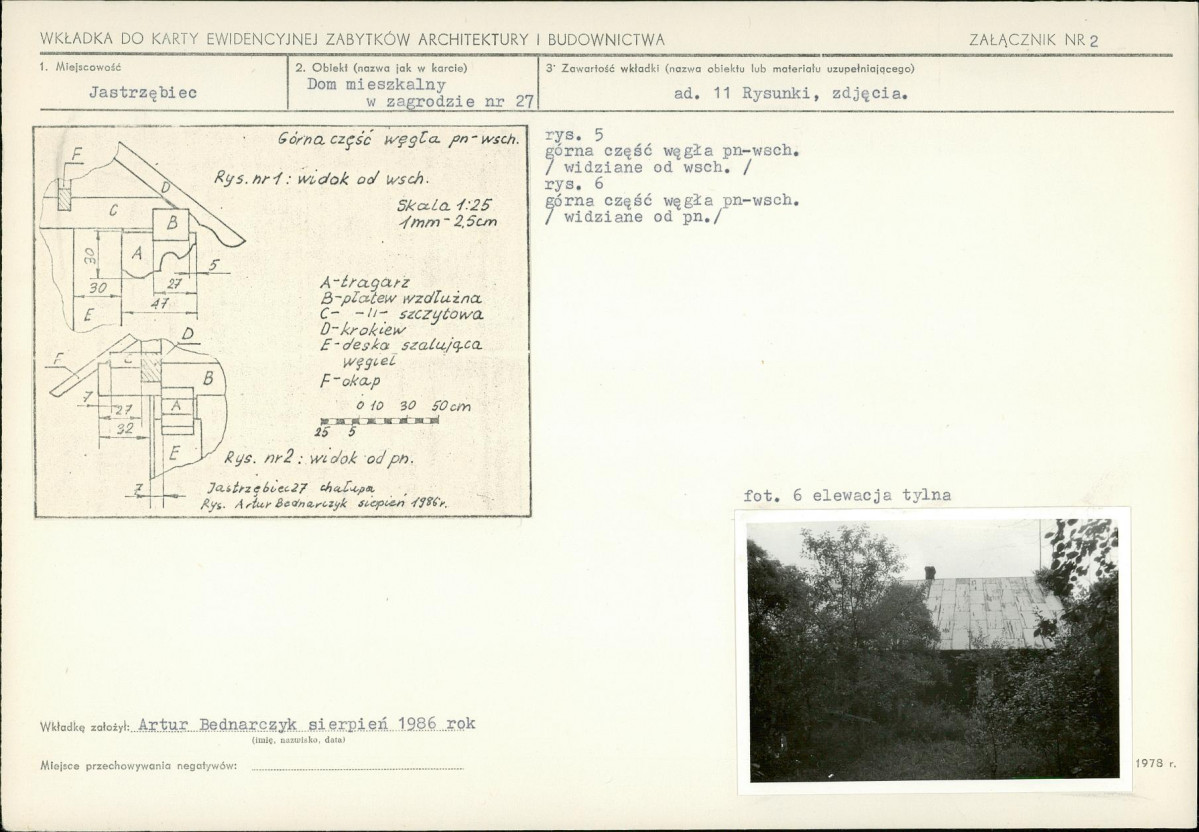 WKŁADKA DO KARTY EWIDENCYJNEJ ZABYTKÓW ARCHITEKTURY I BUDOWNICTWA
ZAŁĄCZNIK NR 2
1. Miejscowość
Jastrzębiec
2. Obiekt (nazwa jak w karcie)
Dom mieszkalny
w zagrodzie nr 27
3. Zawartość wkładki (nazwa obiektu lub materiału uzupełniającego)
ad. 11 Rysunki, zdjęcia.
Górna część węgła pn-wsch.
Rys. nr 1 : widok od wsch.
Skala 1:25
1mm - 2,5cm
F
D
C
B
A
30
5
30
27
47
E
A-tragarz
B-płatew wzdłużna
C- -II- szczytowa
D-krokiew
E-deska szalująca
węgieł
F-okap
D
F
C
B
7
A
27
32
E
7
0 10 30 50 cm
25 5
Rys. nr 2 : widok od pn.
Jastrzębiec 27 chałupa
Rys. Artur Bednarczyk sierpień 1986r.
rys. 5
górna część węgła pn-wsch.
/ widziane od wsch. /
rys. 6
górna część węgła pn-wsch.
/ widziane od pn./
fot. 6 elewacja tylna
Wkładkę założył: Artur Bednarczyk sierpień 1986 rok
(imię, nazwisko, data)
Miejsce przechowywania negatywów:
1978 r.